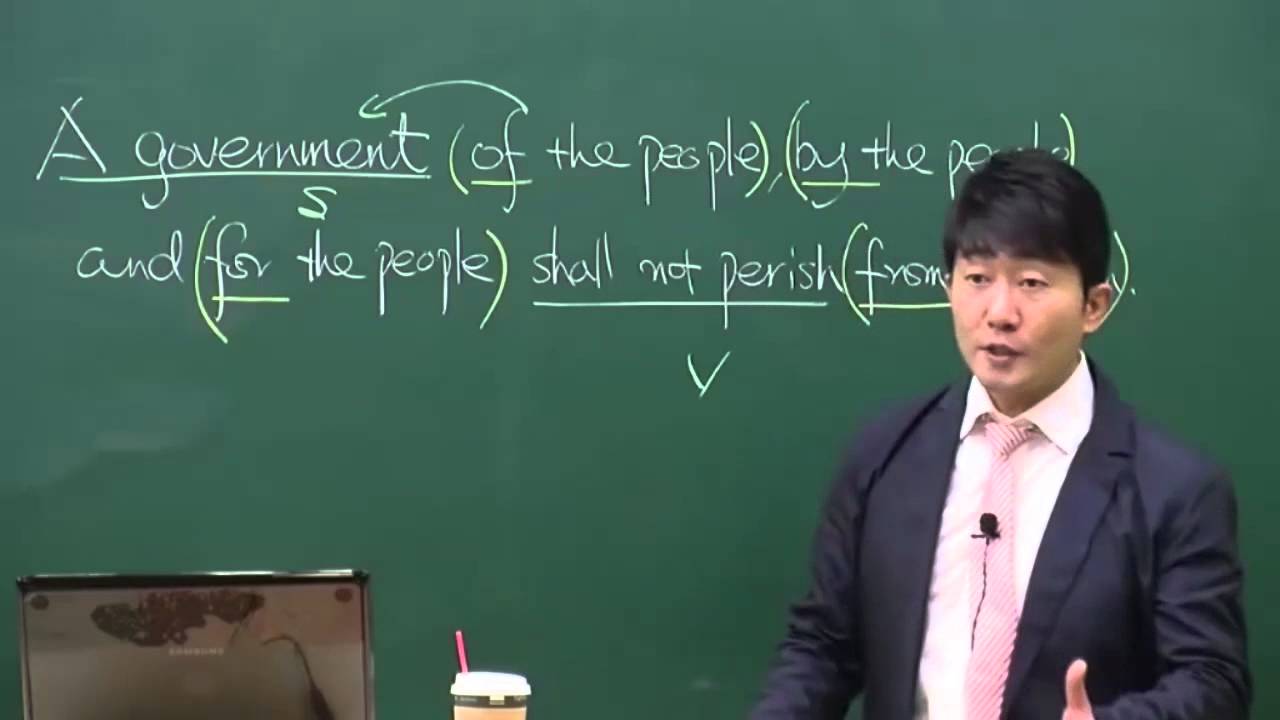 A government (of the people), (by the people)
S
and (for the people) shall not perish (from
V
SAMSUNG